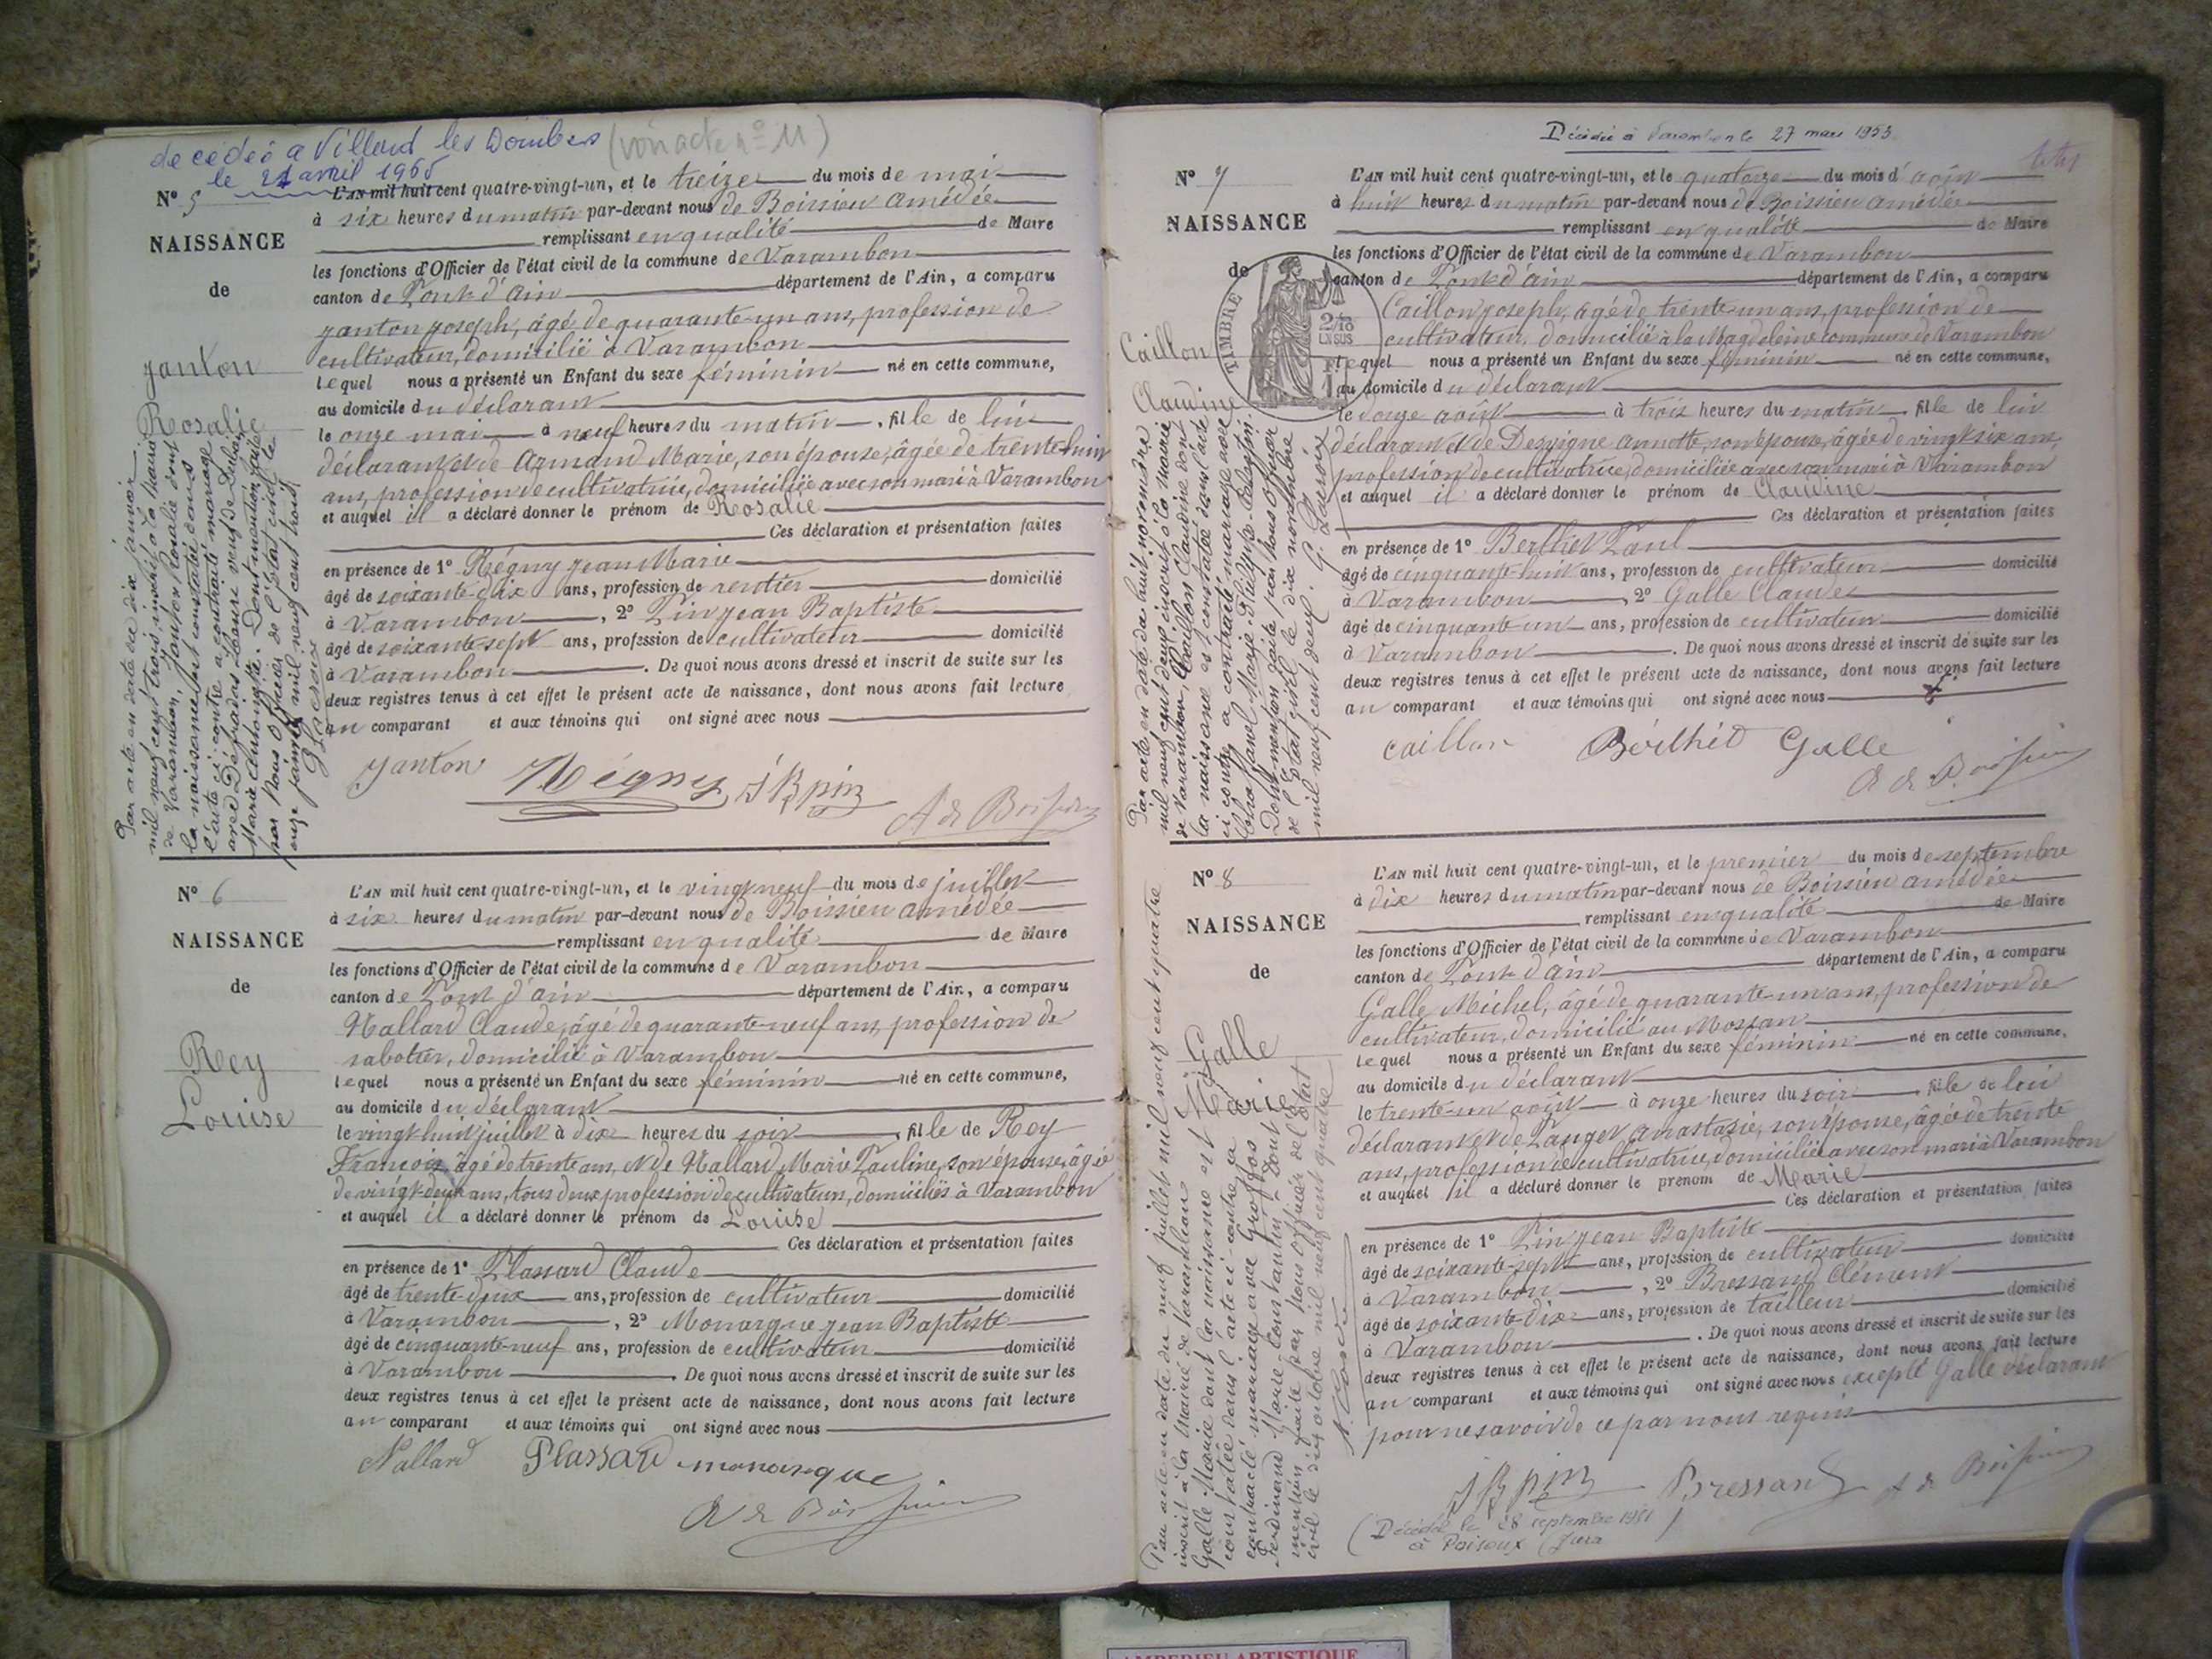 decédéé a Villard les Dombes (voir acte nº 11)
le 21 avril 1965
Nº 5
NAISSANCE
de
Janton
Rosalie
L'AN mil huit cent quatre-vingt-un, et le treize du mois de mai
à six heures du matin par-devant nous de Boissieu Amédée
remplissant en qualité de Maire
les fonctions d'Officier de l'état civil de la commune de Varambon
canton de Pont d'Ain département de l'Ain, a comparu
Janton Joseph, âgé de quarante-un ans, profession de
cultivateur, domicilié à Varambon
lequel nous a présenté un Enfant du sexe féminin né en cette commune,
au domicile du déclarant
le onze mai à neuf heures du matin, fille de lui
déclarant et de Armand Marie, son épouse, âgée de trente-huit
ans, profession de cultivatrice, domiciliée avec son mari à Varambon
et auquel il a déclaré donner le prénom de Rosalie
Ces déclaration et présentation faites
en présence de 1° Régny Jean Marie
âgé de soixante-dix ans, profession de rentier domicilié
à Varambon, 2° Pin Jean Baptiste
âgé de soixante-sept ans, profession de cultivateur domicilié
à Varambon. De quoi nous avons dressé et inscrit de suite sur les
deux registres tenus à cet effet le présent acte de naissance, dont nous avons fait lecture
au comparant et aux témoins qui ont signé avec nous
Janton Régny J B pin A de Boissieu
Par acte en date du dix janvier
mil neuf cent trois, inscrit à la mairie
de Varambon, Janton Rosalie dont
la naissance est constatée dans
l'acte ci-contre a contracté mariage
avec
Marie Antoinette. Dont mention faite
par Nous Officier de l'état civil le
onze janvier mil neuf cent trois
G Lacroix
Nº 6
NAISSANCE
de
Rey
Louise
L'AN mil huit cent quatre-vingt-un, et le vingt neuf du mois de juillet
à six heures du matin par-devant nous de Boissieu Amédée
remplissant en qualité de Maire
les fonctions d'Officier de l'état civil de la commune de Varambon
canton de Pont d'ain département de l'Ain, a comparu
Nallard Claude, âgé de quarante-neuf ans, profession de
sabotier, domicilié à Varambon
lequel nous a présenté un Enfant du sexe féminin né en cette commune,
au domicile du déclarant
le vingt huit juillet à dix heures du soir, fille de Rey
François, âgé de trente ans, et de Nallard Marie Pauline, son épouse, âgée
de vingt-deux ans, tous deux profession de cultivateurs, domiciliés à Varambon
et auquel il a déclaré donner le prénom de Louise
Ces déclaration et présentation faites
en présence de 1° Plassard Claude
âgé de trente-deux ans, profession de cultivateur domicilié
à Varambon, 2° Monarque Jean Baptiste
âgé de cinquante-neuf ans, profession de cultivateur domicilié
à Varambon. De quoi nous avons dressé et inscrit de suite sur les
deux registres tenus à cet effet le présent acte de naissance, dont nous avons fait lecture
au comparant et aux témoins qui ont signé avec nous
Nallard Plassard monarque
A de Boissieu
Décédée à Varambon le 27 mars 1953
Nº 7
NAISSANCE
de
TIMBRE
2/10
EN SUS
Caillon
Claudine
L'AN mil huit cent quatre-vingt-un, et le quatorze du mois d'août
à huit heures du matin par-devant nous de Boissieu Amédée
remplissant en qualité de Maire
les fonctions d'Officier de l'état civil de la commune de Varambon
canton de Pont d'ain département de l'Ain, a comparu
Caillon Joseph, âgé de trente-un ans, profession de
cultivateur, domicilié à la Magdeleine commune de Varambon
lequel nous a présenté un Enfant du sexe féminin né en cette commune,
au domicile du déclarant
le douze août à trois heures du matin, fille de lui
déclarant et de Desvigne Annette, son épouse, âgée de vingt six ans,
profession de cultivatrice, domiciliée avec son mari à Varambon
et auquel il a déclaré donner le prénom de Claudine
Ces déclaration et présentation faites
en présence de 1° Berthet Paul
âgé de cinquante-huit ans, profession de cultivateur domicilié
à Varambon, 2° Galle Claude
âgé de cinquante-un ans, profession de cultivateur domicilié
à Varambon. De quoi nous avons dressé et inscrit de suite sur les
deux registres tenus à cet effet le présent acte de naissance, dont nous avons fait lecture
au comparant et aux témoins qui ont signé avec nous
caillon Bérthét Galle
A de Boissieu
Par acte en date du huit novembre
mil neuf cent deux inscrit à la mairie
de Varambon, Caillon Claudine dont
la naissance est constatée dans l'acte
ci contre a contracté mariage avec
Marie Philippe
Dont mention faite par Nous Officier
de l'état civil le dix novembre
mil neuf cent deux. G. Lacroix
Nº 8
NAISSANCE
de
Galle
Marie
L'AN mil huit cent quatre-vingt-un, et le premier du mois de septembre
à dix heures du matin par-devant nous de Boissieu Amédée
remplissant en qualité de Maire
les fonctions d'Officier de l'état civil de la commune de Varambon
canton de Pont d'ain département de l'Ain, a comparu
Galle Michel, âgé de quarante-un ans, profession de
cultivateur, domicilié au Mossan
lequel nous a présenté un Enfant du sexe féminin né en cette commune,
au domicile du déclarant
le trente-un août à onze heures du soir, fille de lui
déclarant et de Pauget Anastasie, son épouse, âgée de trente
ans, profession de cultivatrice, domiciliée avec son mari à Varambon
et auquel il a déclaré donner le prénom de Marie
Ces déclaration et présentation faites
en présence de 1° Pin Jean Baptiste
âgé de soixante-sept ans, profession de cultivateur domicilié
à Varambon, 2° Bressand Clément
âgé de soixante-dix ans, profession de tailleur domicilié
à Varambon. De quoi nous avons dressé et inscrit de suite sur les
deux registres tenus à cet effet le présent acte de naissance, dont nous avons fait lecture
au comparant et aux témoins qui ont signé avec nous excepté Galle déclarant
pour ne savoir de ce par nous requis
J B pin Bressand A de Boissieu
(Décédée le 28 septembre 1951
à Poisoux (Jura)
Par acte en date du neuf juillet mil neuf cent quatre
inscrit à la Mairie de Varambon
Galle Marie dont la naissance est
constatée dans l'acte ci-contre a
contracté mariage avec Groffos
Ferdinand Marie Constantin. Dont
mention faite par nous officier de l'état
civil le dix octobre mil neuf cent quatre
AMBERIEU ARTISTIQUE